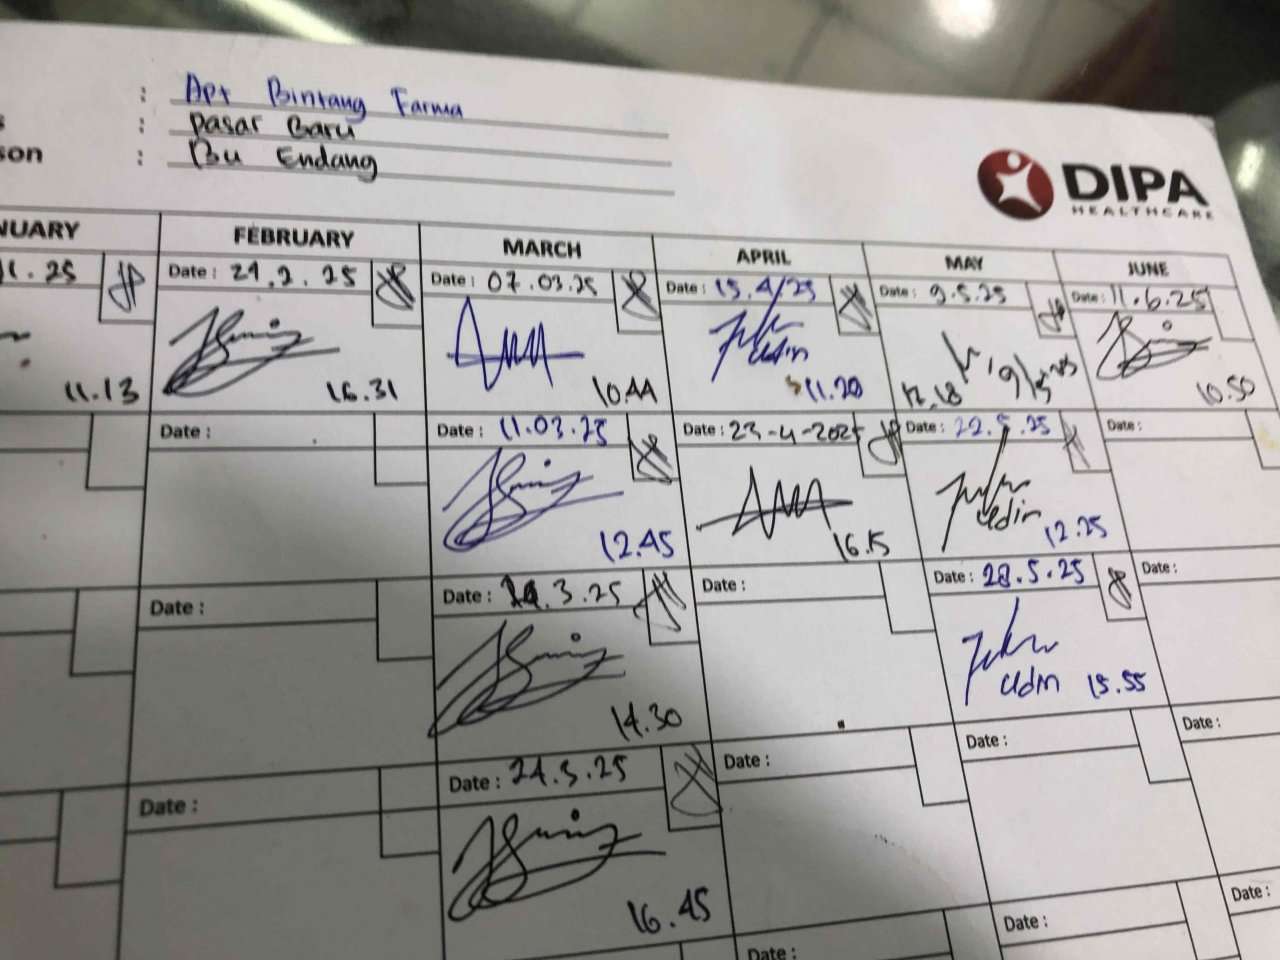 : Apt Bintang Farma
s : Pasar Baru
son : Bu Endang
DIPA
HEALTHCARE
NUARY FEBRUARY MARCH APRIL MAY JUNE
1.25 Date : 21.2.25 Date : 07.03.25 Date : 15.4/25 Date : 9.5.25 Date : 11.6.25
11.13 16.31 10.44 Udin 11.20 12.18 10.50
Date : Date : 11.03.25 Date : 23-4-2025 Date : 22.5.25 Date :
12.45 16.15 Udin 12.25
Date : Date : .3.25 Date : Date : 28.5.25 Date :
14.30 Udin 15.55
Date : Date : 24.3.25 Date : Date : Date :
16.45
Date : Date : Date :